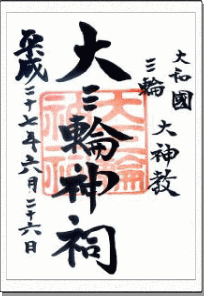 大和國
三輪
大神教
大三輪神祠
平成二十七年六月二十六日